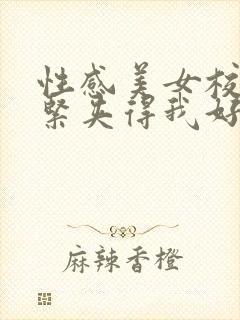 性感美女校
紧夹得我好
麻辣香橙